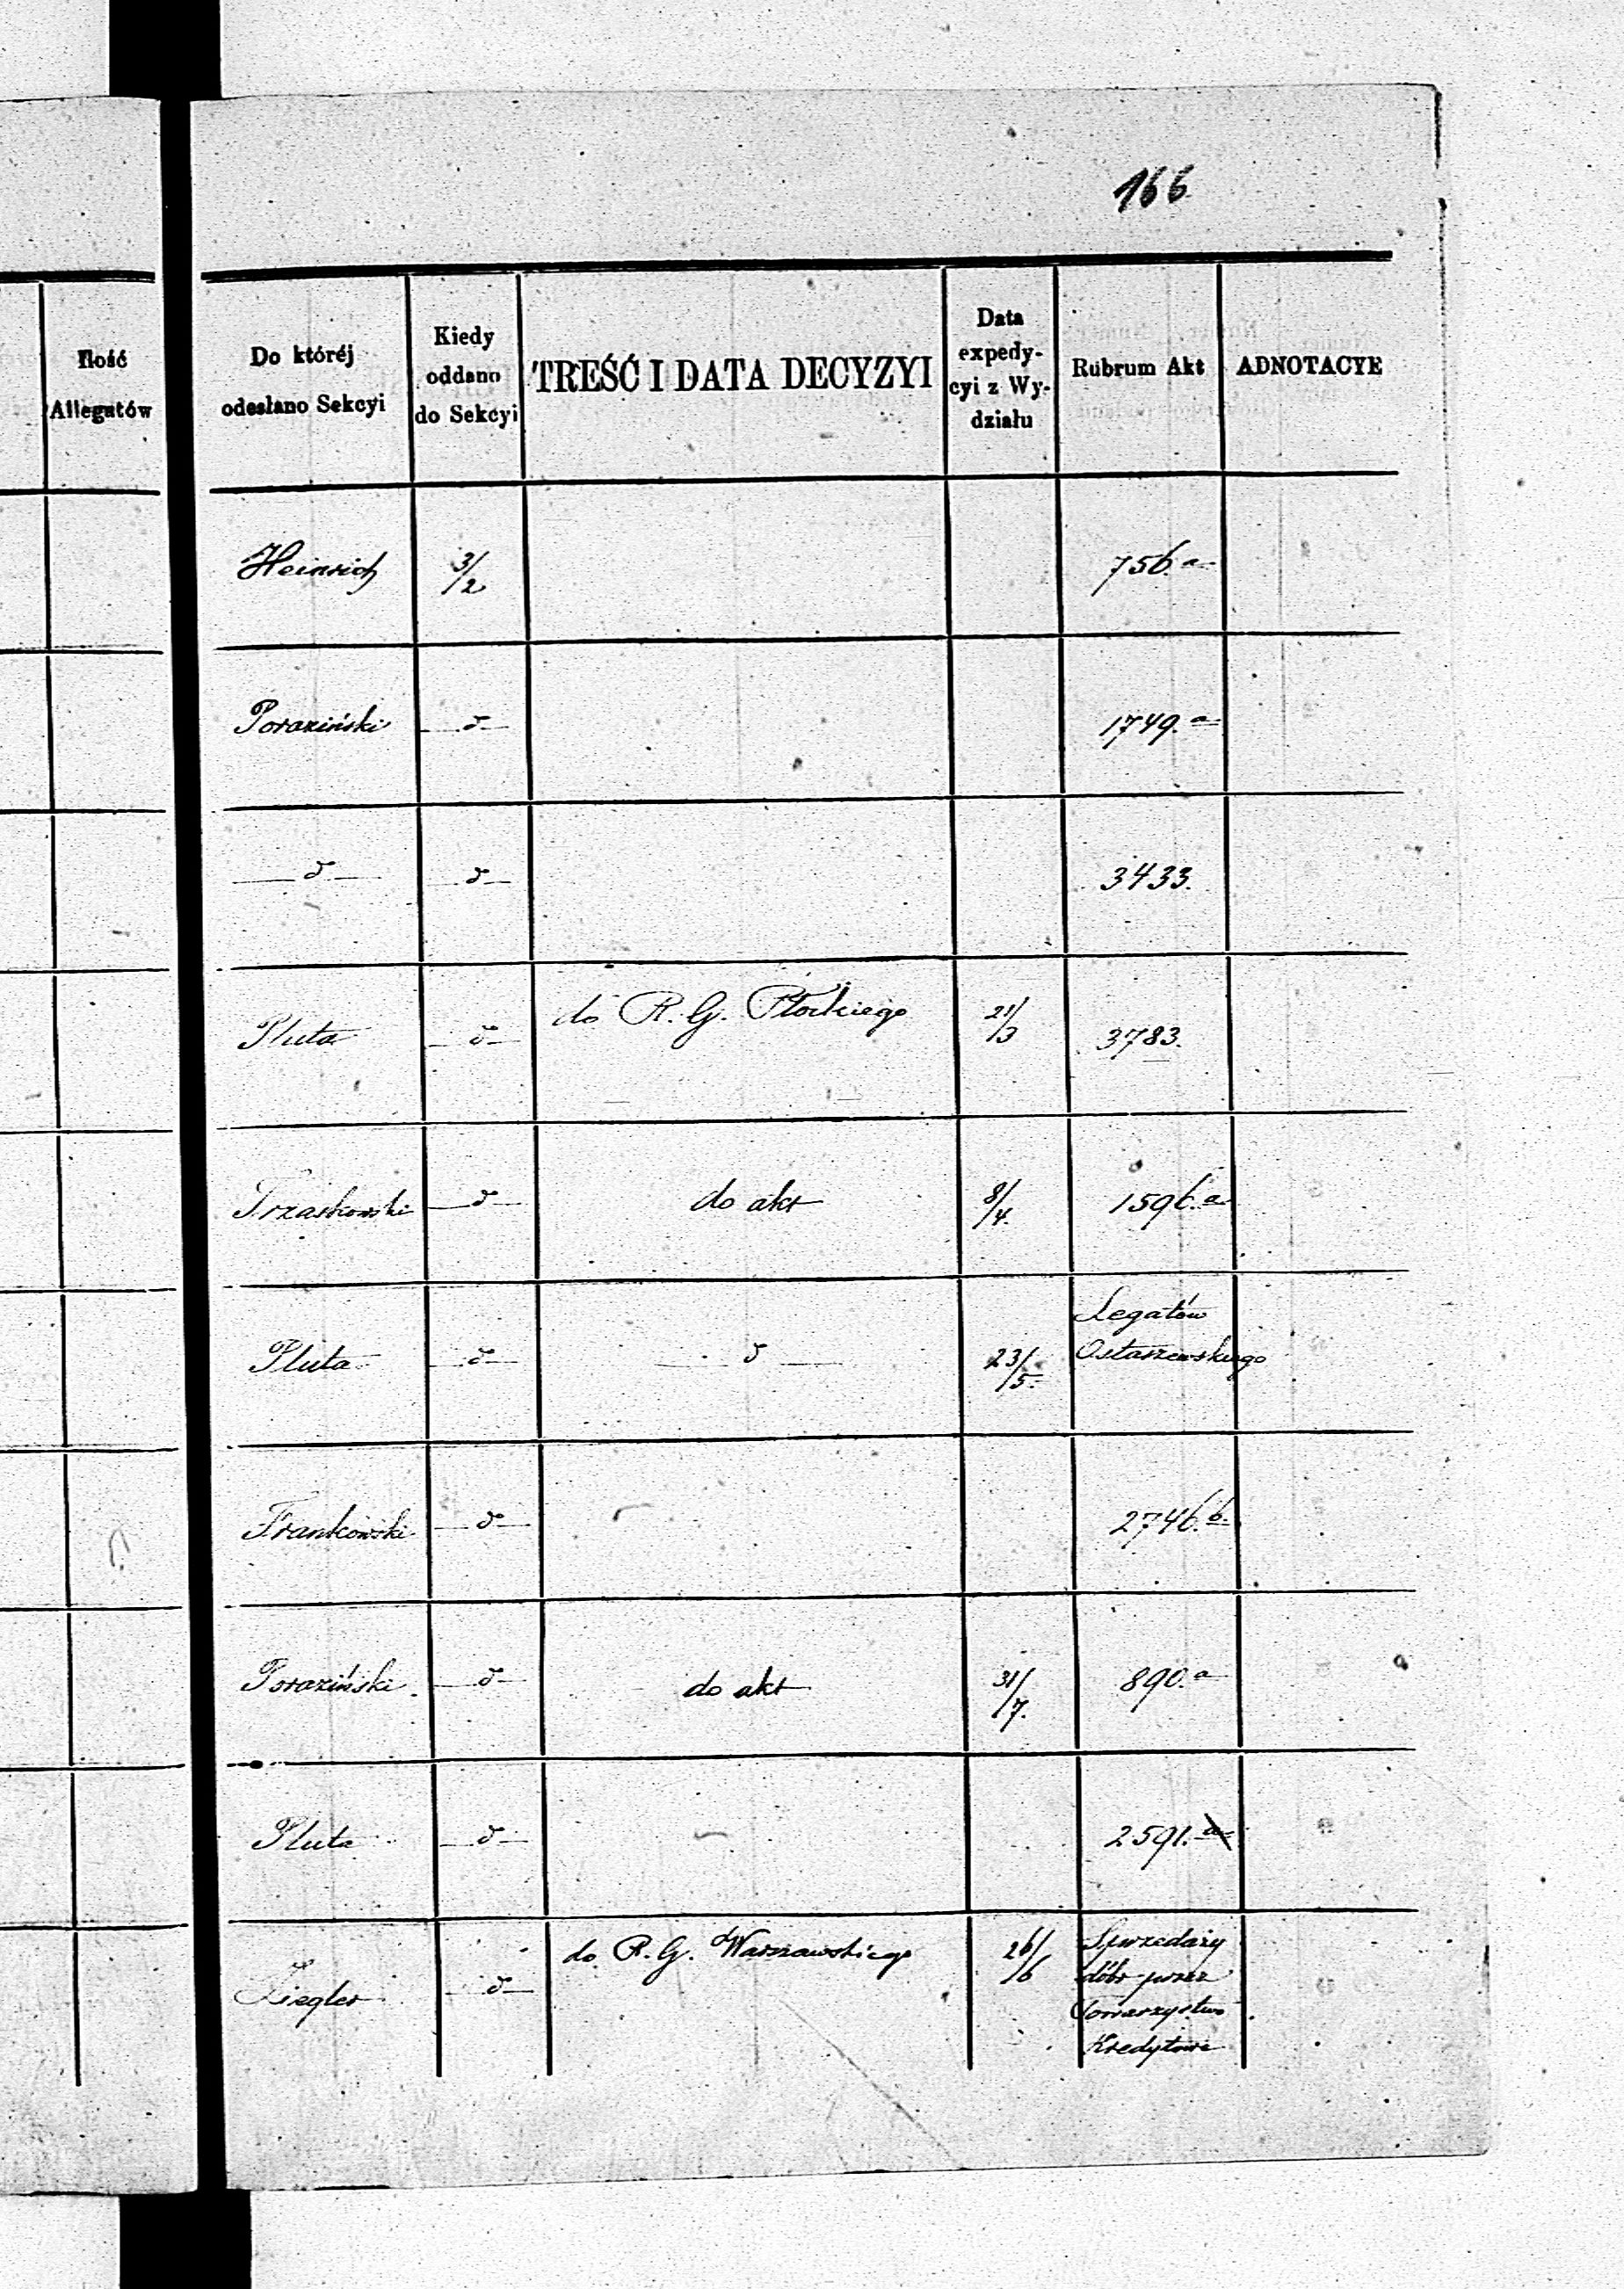 166
Ilość
Allegatów
Do któréj
odesłano Sekcyi
Kiedy
oddano
do Sekcyi
TREŚĆ I DATA DECYZYI
Data
expedy-
cyi z Wy-
działu
Rubrum Akt
ADNOTACYE
Heinrich 3/2 756.a
Poraziński d 1749.a
d d 3433.
Pluta d do R. G. Płockiego 21/3 3783.
Trzaskowski d do akt 8/4. 1596.a
Pluta d d 23/5. Legatów
Ostaszewskiego
Frankowski d 2746.b.
Poraziński d do akt 31/7. 890.a
Pluta d 2591.a
Ziegler d do R. G. Warszawskiego 26/6 Sprzedaży
dóbr przez
Towarzystwo
Kredytowe